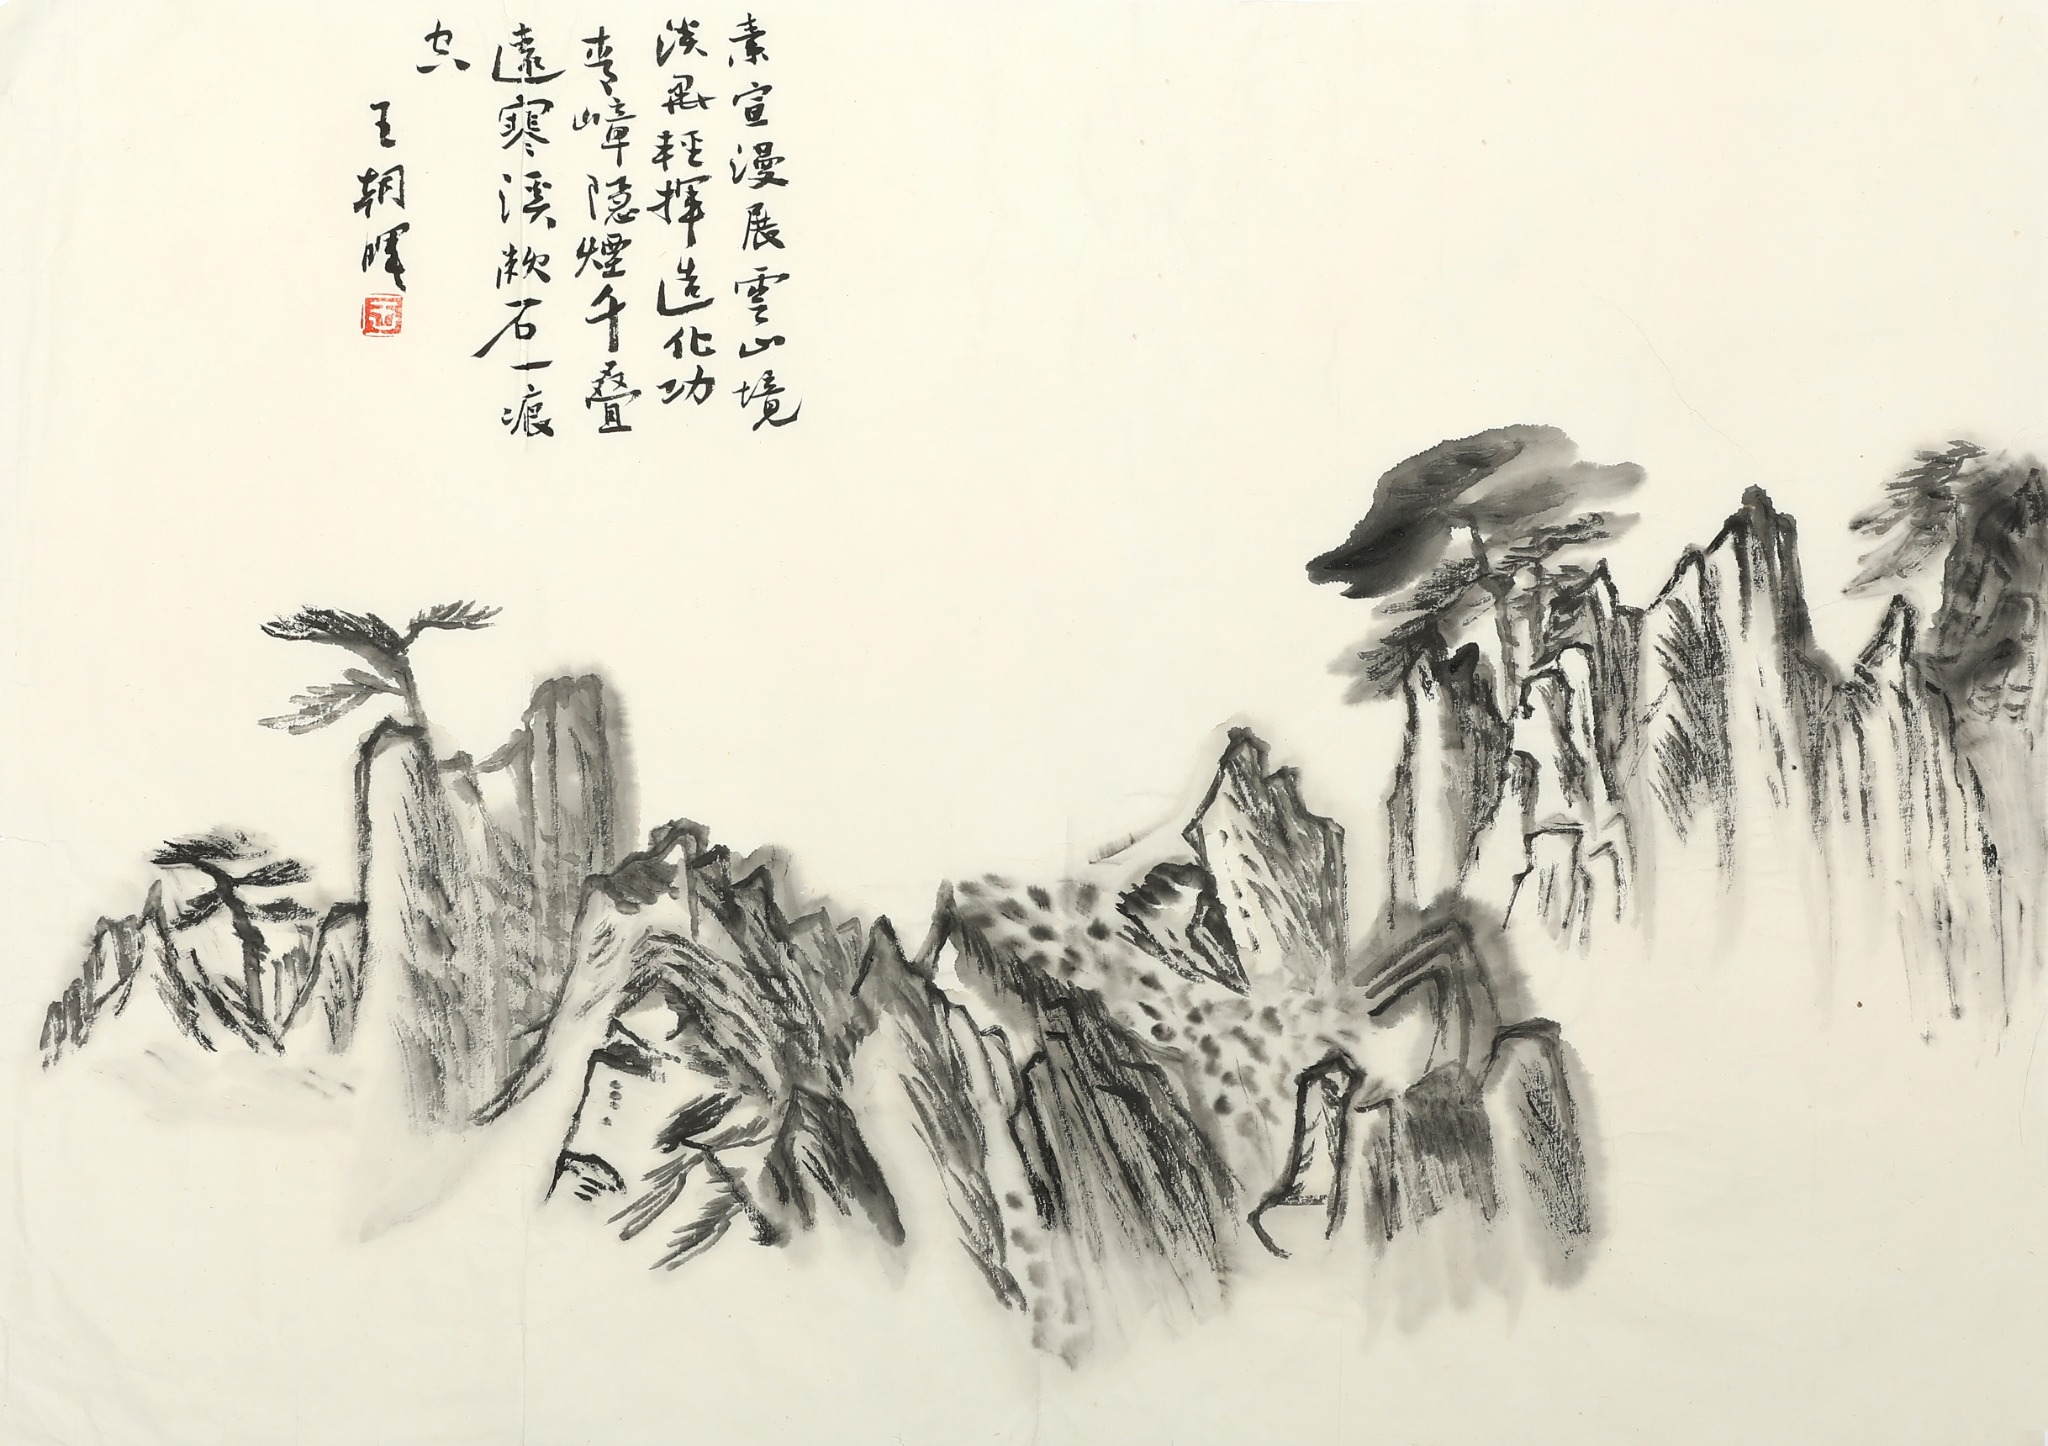 素宣漫展雲山境
淡墨輕揮造化功
青嶂隐煙千叠
遠寒溪漱石一痕
空
王朝暉
王